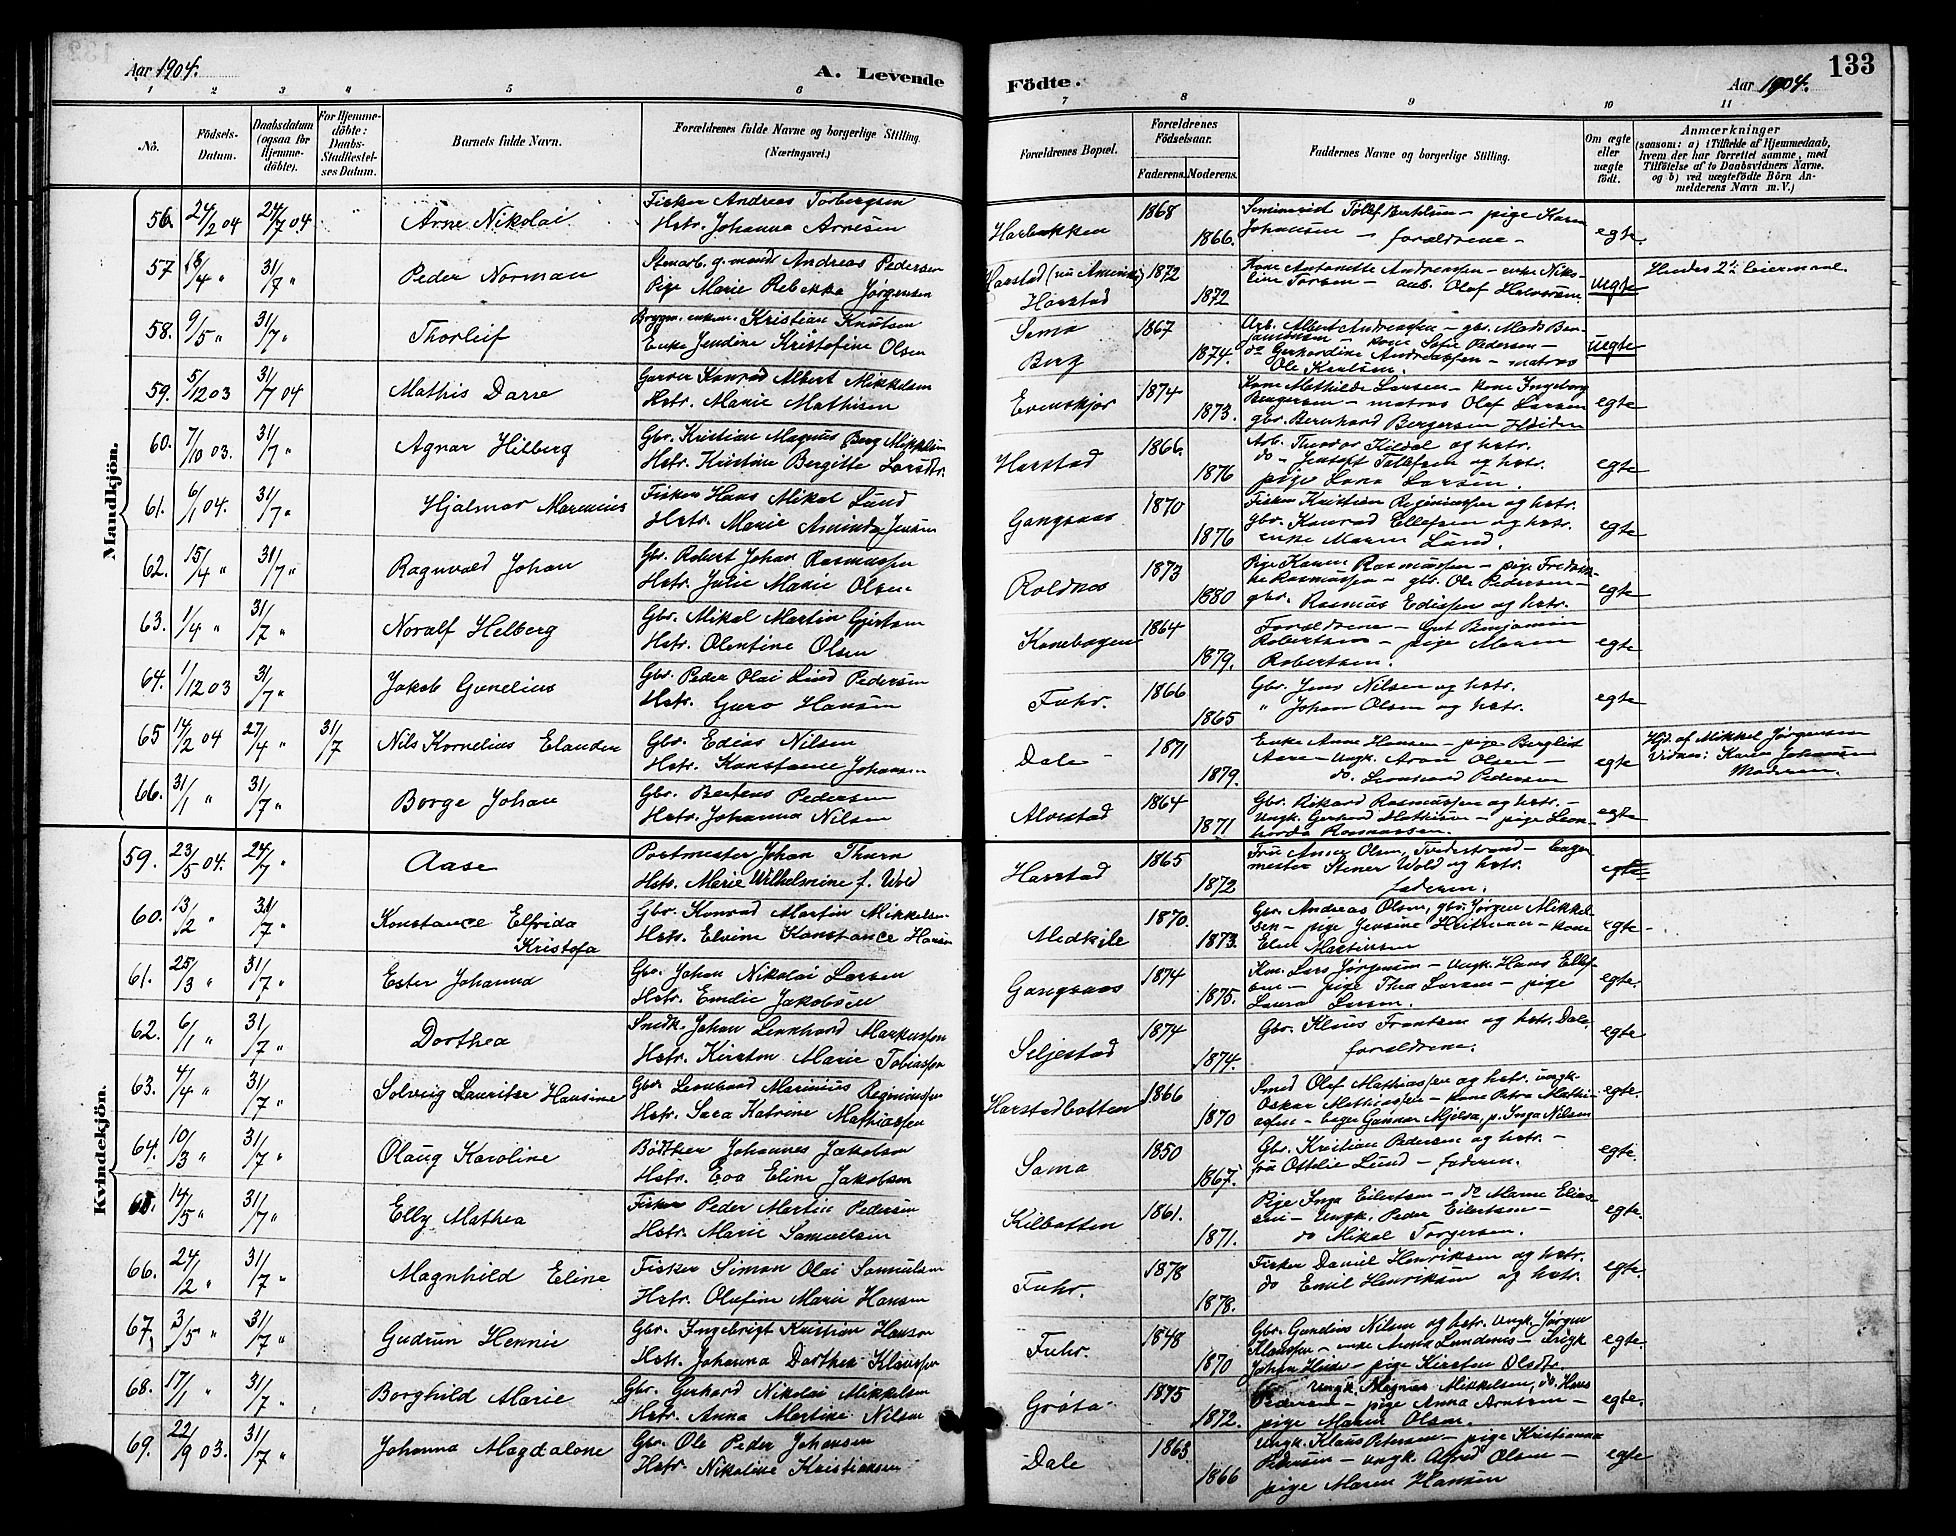 Aar 1904.
A. Levende
Födte.
Aar 1904.
133
1 2 3 4 5 6 7 8 9 10 11
No.
Födsels-Datum.
Daabsdatum (ogsaa for Hjemme-döbte).
For Hjemme-döbte: Daabs-Stadfæstel-ses Datum.
Barnets fulde Navn.
Forældrenes fulde Navne og borgerlige Stilling.
(Næringsvei.)
Forældrenes Bopæl.
Forældrenes Födselsaar.
Faderens. Moderens.
Faddernes Navne og borgerlige Stilling.
Om ægte eller uægte födt.
Anmærkninger
(saasom: a) i Tilfælde af Hjemmedaab,
hvem der har forrettet samme, med
Tilföielse af to Daabsvidners Navne.
og b) ved uægtefödte Börn An-
melderens Navn m. V.)
Mandkjön.
56. 24/2 04 24/7 04 Arne Nikolai
Fisker Andreas Torbergsen
Hstr. Johanna Arnesen
Harbakken 1868 1866.
pige Karen
Johansen — forældrene —
egte.
57 18/4 " 31/7 " Peder Norman
Andreas Pedersen
Pige Marie Rebekka Jørgensen
Harstad
Harstad 1872 1872
Kone Antonette Andreassen — enke Niko-
line Torsen — arb. Olaf Halvorsen
uegte
Hendes 2det leiermaal
58. 9/5 " 31/7 " Thorleif
Kristian Knutsen
Enke Jendine Kristofine Olsen
Sema
Berg 1867 1874.
Arb. Albert Andreassen — gbr. Mads Ben-
jaminsen — kone Sofie Pedersen —
do Gerhardine Andreassen — matros
Ole Karlsen.
uegte
59. 5/12 03 31/7 04 Mathis Darre
Garver Konrad Albert Mikkelsen
Hstr. Marie Mathisen
Evenskjer 1874 1873.
Kone Mathilde Larsen — kone Ingeborg
Bergersen — matros Olaf Larsen
gbr. Bernhard Bergersen
egte
60. 7/10 03. 31/7 " Agnar Hilberg
Gbr. Kristian Magnus Berg Mikkelsen
Hstr. Kristine Bergitte Larsdtr.
Harstad 1866. 1876
Arb. Theodor Kildal og hstr.
do — Jentoft Tollefsen og hstr.
pige Lena Larsen.
egte
61. 6/1 04. 31/7 " Hjalmar Marenius
Fisker Hans Mikal Lund
Hstr. Marie Aminda Jensen
Gangsaas 1870 1876
Fisker Kristian Reginiussen og hstr.
gbr. Konrad Ellefsen og hstr.
enke Maren Lund.
egte
62. 15/4 " 31/7 " Ragnvald Johan
Gbr. Robert Johan Rasmussen
Hstr. Julie Marie Olsen
Roldnes 1873 1880
Pige Karen Rasmussen — pige Fredrik-
ke Rasmussen — gbr. Ole Pedersen —
gbr. Rasmus Edissen og hstr.
egte
63. 1/4 " 31/7 " Noralf Helberg
Gbr. Mikal Martin Gjertsen
Hstr. Olentine Olsen
Kanebogen 1864 1879.
Forældrene — Gut Benjamin
Robertsen — pige Maren
Robertsen.
egte
64. 1/12 03 31/7 " Jakob Gunelius
Gbr. Peder Olai Lind Pedersen
Hstr. Guro Hansen
Fuhr. 1866 1865
Gbr. Jens Nilsen og hstr.
" Johan Olsen og hstr.
egte
65 14/2 04 27/4 " 31/7 Nils Kornelius Elander
Gbr. Edias Nilsen
Hstr. Konstance Johansen
Dale 1871 1879.
Enke Anne Hansen — pige Bergliot
Aane — Ungk. Aron Olsen —
do. Leonhard Pedersen
egte
Hjd. af Mikkel Jørgensen
Vidner: Karen Johansen
Moderen.
66. 31/1 " 31/7 " Borge Johan
Gbr. Bertens Pedersen
Hstr. Johanna Nilsen
Alvestad 1864 1871
Gbr. Rikard Rasmussen og hstr. —
Ungk. Gerhard Mathisen — pige Leon-
harda Rasmussen.
egte
Kvindekjön.
59. 23/5 04. 24/7 " Aase
Postmester Johan Thurn
Hstr. Marie Wilhelmine f. Wold
Harstad 1865 1872
Fru Anna Olsen, Tvedestrand — bager-
mester Stener Wold og hstr.
faderen.
egte
60. 13/2 " 31/7 " Konstance Elfrida
Kristofa
Gbr. Konrad Martin Mikkelsen
Hstr. Elvine Konstance Hansen
Medkile 1870. 1873.
Gbr. Andreas Olsen, gbr. Jørgen Mikkel-
sen — pige Jensine Heitmann — kone
Elen Martinsen
egte
61. 25/3 " 31/7 " Ester Johanna
Gbr. Johan Nikolai Larsen
Hstr. Emilie Jakobsen
Gangsaas 1874 1875.
Lars Jørgensen — Ungk. Hans Ellef-
sen — pige Thea Larsen — pige
Laura Larsen.
egte.
62. 6/1 " 31/7 " Dorthea
Snedk. Johan Lennhard Markussen
Hstr. Kirsten Marie Tobiassen
Seljestad 1874 1874.
Gbr. Klaus Frantsen og hstr. Dale,
forældrene.
egte
63. 4/4 " 31/7 " Solveig Lauritze Hansine
Gbr Leonhard Marinius Reginiussen
Hstr. Sara Katrine Mathiassen
Harstadbotten 1866 1870
Smed Olaf Mathiassen og hstr. ungk.
Oskar Mathiassen — kone Petra Mathi-
assen — bager Gunnar Mjelsa, p. Inga Nilsen
egte.
64. 10/3 " 31/7 " Olaug Karoline
Bødker Johannes Jakobsen
Hstr. Eva Eline Jakobsen
Sama 1850 1867.
Gbr. Kristian Pedersen og hstr. —
fru Ottilie Lund — faderen.
egte.
65. 14/5 " 31/7 " Elly Mathea
Fisker Peder Martin Pedersen
Hstr. Marie Samuelsen
Kilbotten 1861. 1871.
Pige Inga Eilertsen — do Marne Elias-
sen — Ungk. Peder Eilertsen —
do Mikal Torgersen.
egte.
66. 24/12 " 31/7 " Magnhild Eline
Fisker Simon Olai Samuelsen
Hstr. Olufine Marie Hansen
Fuhr. 1878 1878.
Fisker Daniel Henriksen og hstr.
do Emil Henriksen og hstr.
egte.
67. 3/5 " 31/7 " Gudrun Hennie
Gbr. Ingebrigt Kristian Hansen
Hstr. Johanna Dorthea Klaussen
Fuhr. 1848 1870
Gbr. Gunelius Nilsen og hstr. Ungk. Jørgen
Klaussen — enke Anna Lundenes — Ungk
Johan — pige Kirsten Olsdtr.
egte.
68. 17/1 " 31/7 " Borghild Marie
Gbr. Gerhard Nikolai Mikkelsen
Hstr. Anna Martine Nilsen
Grøta 1875 1872.
Ungk. Magnus Mikkelsen, do. Hans
Pedersen — pige Anna Arntsen —
pige Maren Olsen.
egte.
69. 22/9 03. 31/7 " Johanna Magdalone
Gbr. Ole Peder Johansen
Hstr. Nikoline Kristiansen
Dale 1863 1866
Ungk. Klaus Petersen — pige Kristianna
Pedersen — ungk. Alfred Olsen —
pige Maren Hansen
egte